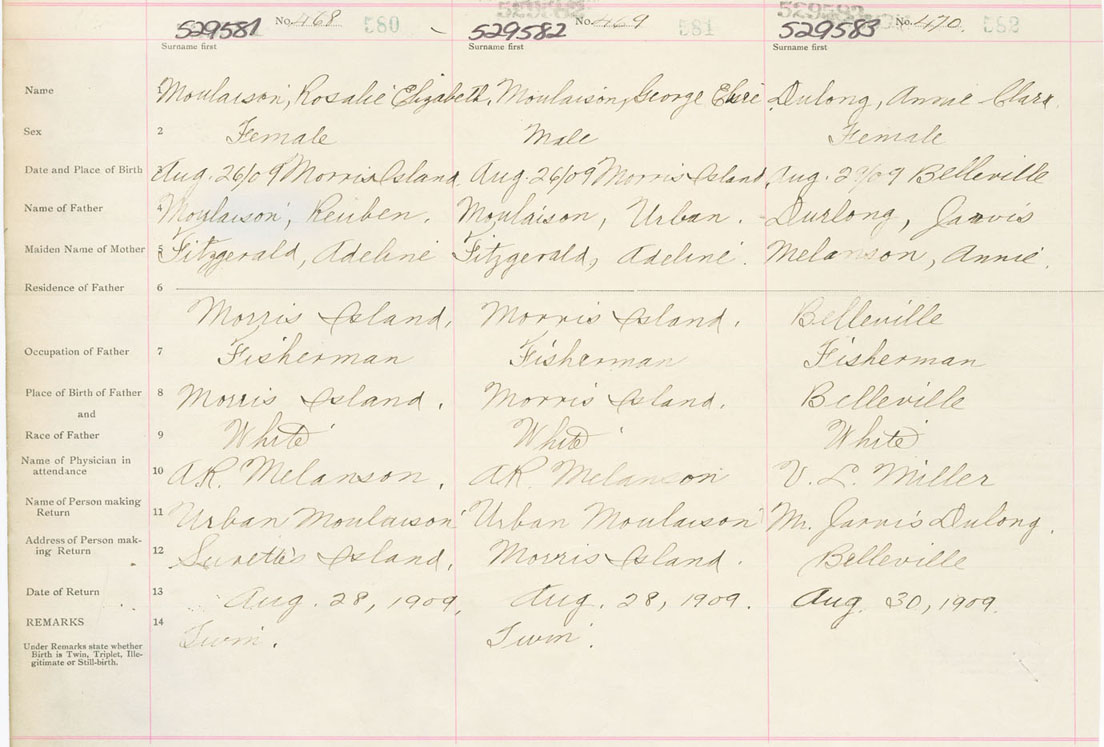 529581 No. 468 580 529582 No. 469 581 529583 No. 470. 582
Surname first Surname first Surname first
Name 1 Moulaison, Rosalie Elizabeth, Moulaison, George Dulong, Annae Clara
Sex 2 Female Male Female
Date and Place of Birth 3 Aug. 26/09 Morris Island, Aug. 26/09 Morris Island, Aug. 29/09 Belleville
Name of Father 4 Moulaison, Reuben. Moulaison, Urban. Durlong, Jarvis
Maiden Name of Mother 5 Fitzgerald, Adeline Fitzgerald, Adeline. Melanson, Annie.
Residence of Father 6
Morris Island, Morris Island. Belleville
Occupation of Father 7 Fisherman Fisherman Fisherman
Place of Birth of Father 8 Morris Island. Morris Island. Belleville
and
Race of Father 9 White White White
Name of Physician in
attendance 10 A.R. Melanson. A.R. Melanson V. L. Miller
Name of Person making
Return 11 Urban Moulaison Urban Moulaison Mr. Jarvis Dulong.
Address of Person mak-
ing Return 12 Surette's Island, Morris Island. Belleville
Date of Return 13 Aug. 28, 1909, Aug. 28, 1909. Aug. 30, 1909.
REMARKS 14 Twin. Twin.
Under Remarks state whether
Birth is Twin, Triplet, Ille-
gitimate or Still-birth.